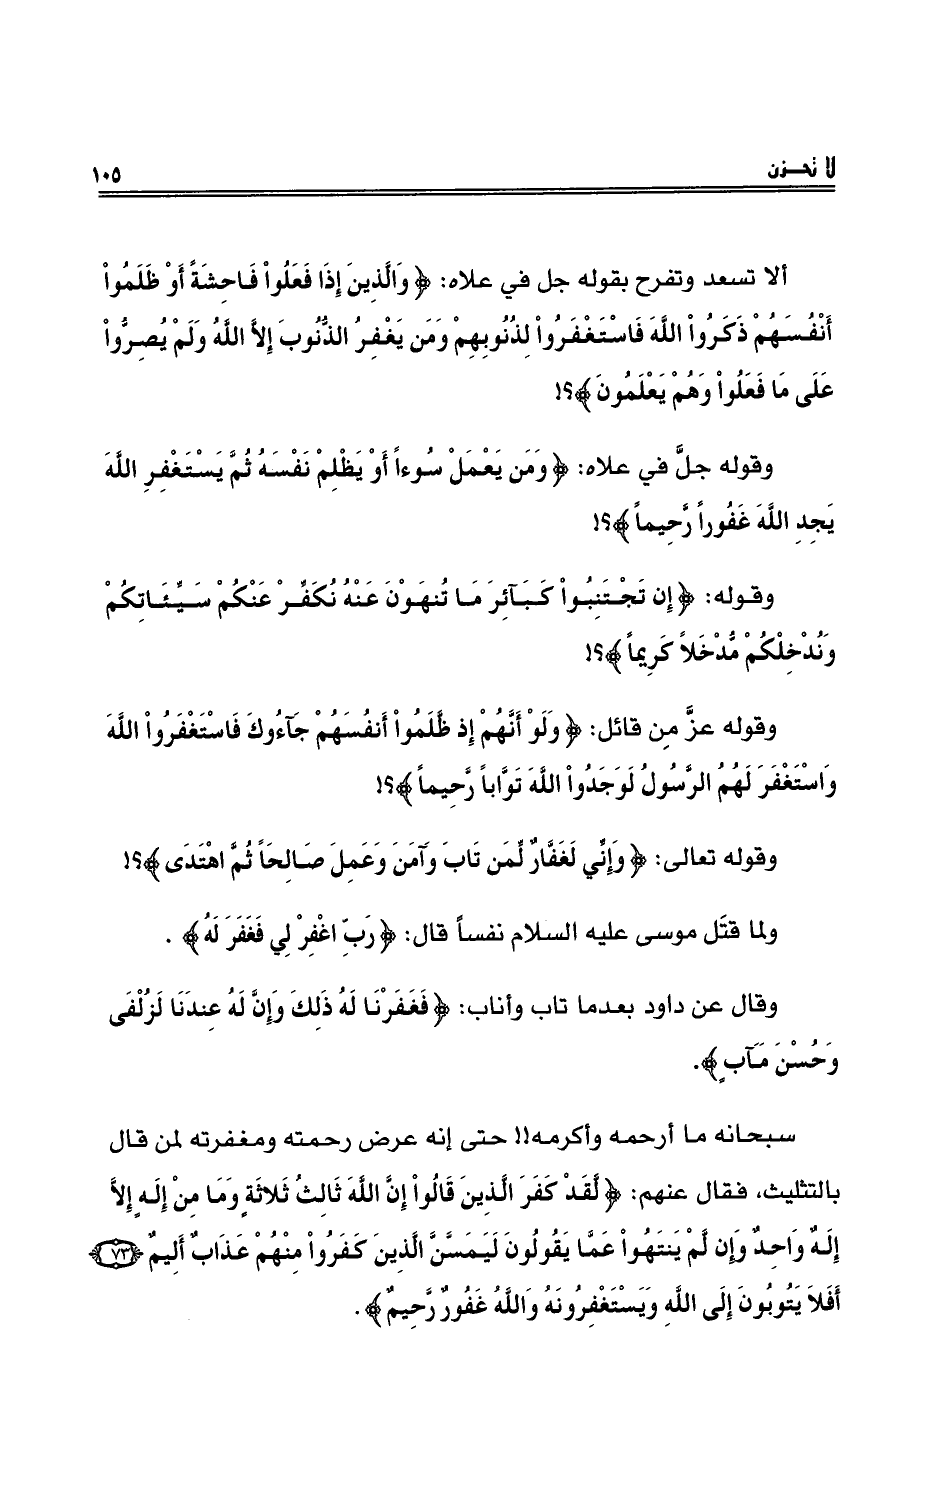 لا تحـزن ١٠٥
ألا تسعد وتفرح بقوله جل في علاه: ﴿وَالَّذِينَ إِذَا فَعَلُواْ فَاحِشَةً أَوْ ظَلَمُواْ
أَنْفُسَهُمْ ذَكَرُواْ اللَّهَ فَاسْتَغْفَرُواْ لِذُنُوبِهِمْ وَمَن يَغْفِرُ الذُّنُوبَ إِلاَّ اللَّهُ وَلَمْ يُصِرُّواْ
عَلَى مَا فَعَلُواْ وَهُمْ يَعْلَمُونَ﴾؟!
وقوله جلَّ في علاه: ﴿وَمَن يَعْمَلْ سُوءاً أَوْ يَظْلِمْ نَفْسَهُ ثُمَّ يَسْتَغْفِرِ اللَّهَ
يَجِدِ اللَّهَ غَفُوراً رَّحِيماً﴾؟!
وقوله: ﴿إِن تَجْتَنِبُواْ كَبَآئِرَ مَا تُنهَوْنَ عَنْهُ نُكَفِّرْ عَنْكُمْ سَيِّئَاتِكُمْ
وَنُدْخِلْكُمْ مُّدْخَلاً كَرِيماً﴾؟!
وقوله عزَّ من قائل: ﴿وَلَوْ أَنَّهُمْ إِذ ظَّلَمُواْ أَنفُسَهُمْ جَآءُوكَ فَاسْتَغْفَرُواْ اللَّهَ
وَاسْتَغْفَرَ لَهُمُ الرَّسُولُ لَوَجَدُواْ اللَّهَ تَوَّاباً رَّحِيماً﴾؟!
وقوله تعالى: ﴿وَإِنِّي لَغَفَّارٌ لِّمَن تَابَ وَآمَنَ وَعَمِلَ صَالِحَاً ثُمَّ اهْتَدَى﴾؟!
ولما قتَل موسى عليه السلام نفساً قال: ﴿رَبِّ اغْفِرْ لِي فَغَفَرَ لَهُ﴾ .
وقال عن داود بعدما تاب وأناب: ﴿فَغَفَرْنَا لَهُ ذَلِكَ وَإِنَّ لَهُ عِندَنَا لَزُلْفَى
وَحُسْنَ مَآبٍ﴾.
سبحانه ما أرحمه وأكرمه!! حتى إنه عرض رحمته ومغفرته لمن قال
بالتثليث، فقال عنهم: ﴿لَّقَدْ كَفَرَ الَّذِينَ قَالُواْ إِنَّ اللَّهَ ثَالِثُ ثَلاثَةٍ وَمَا مِنْ إِلَهٍ إِلاَّ
إِلَهٌ وَاحِدٌ وَإِن لَّمْ يَنتَهُواْ عَمَّا يَقُولُونَ لَيَمَسَّنَّ الَّذِينَ كَفَرُواْ مِنْهُمْ عَذَابٌ أَلِيمٌ ﴿٧٣﴾
أَفَلاَ يَتُوبُونَ إِلَى اللَّهِ وَيَسْتَغْفِرُونَهُ وَاللَّهُ غَفُورٌ رَّحِيمٌ﴾.